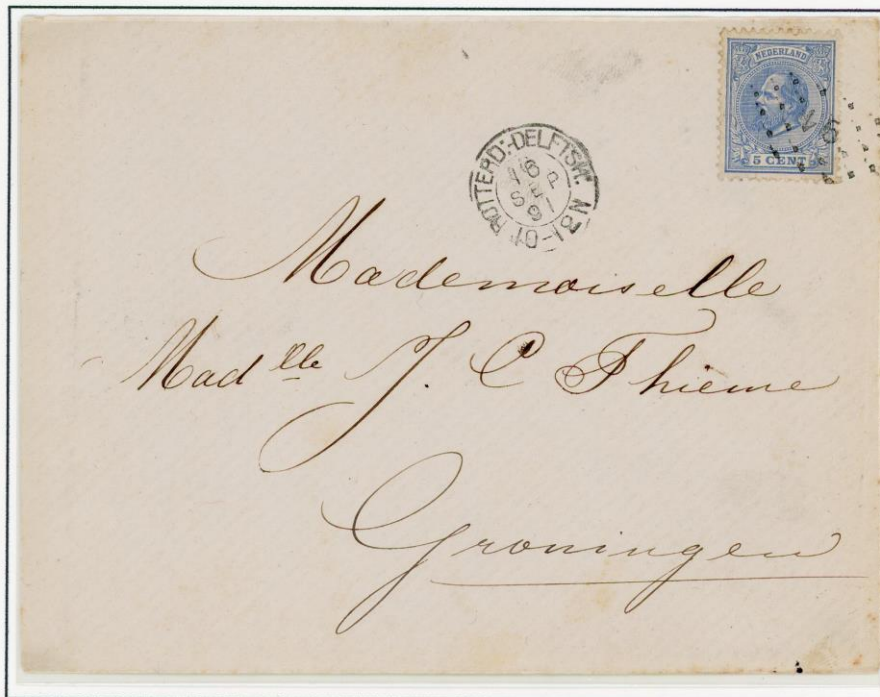 NEDERLAND
5 CENT
ROTTERD:-DELFTSH:
Mademoiselle
Madlle J. C Thieme
Groningen